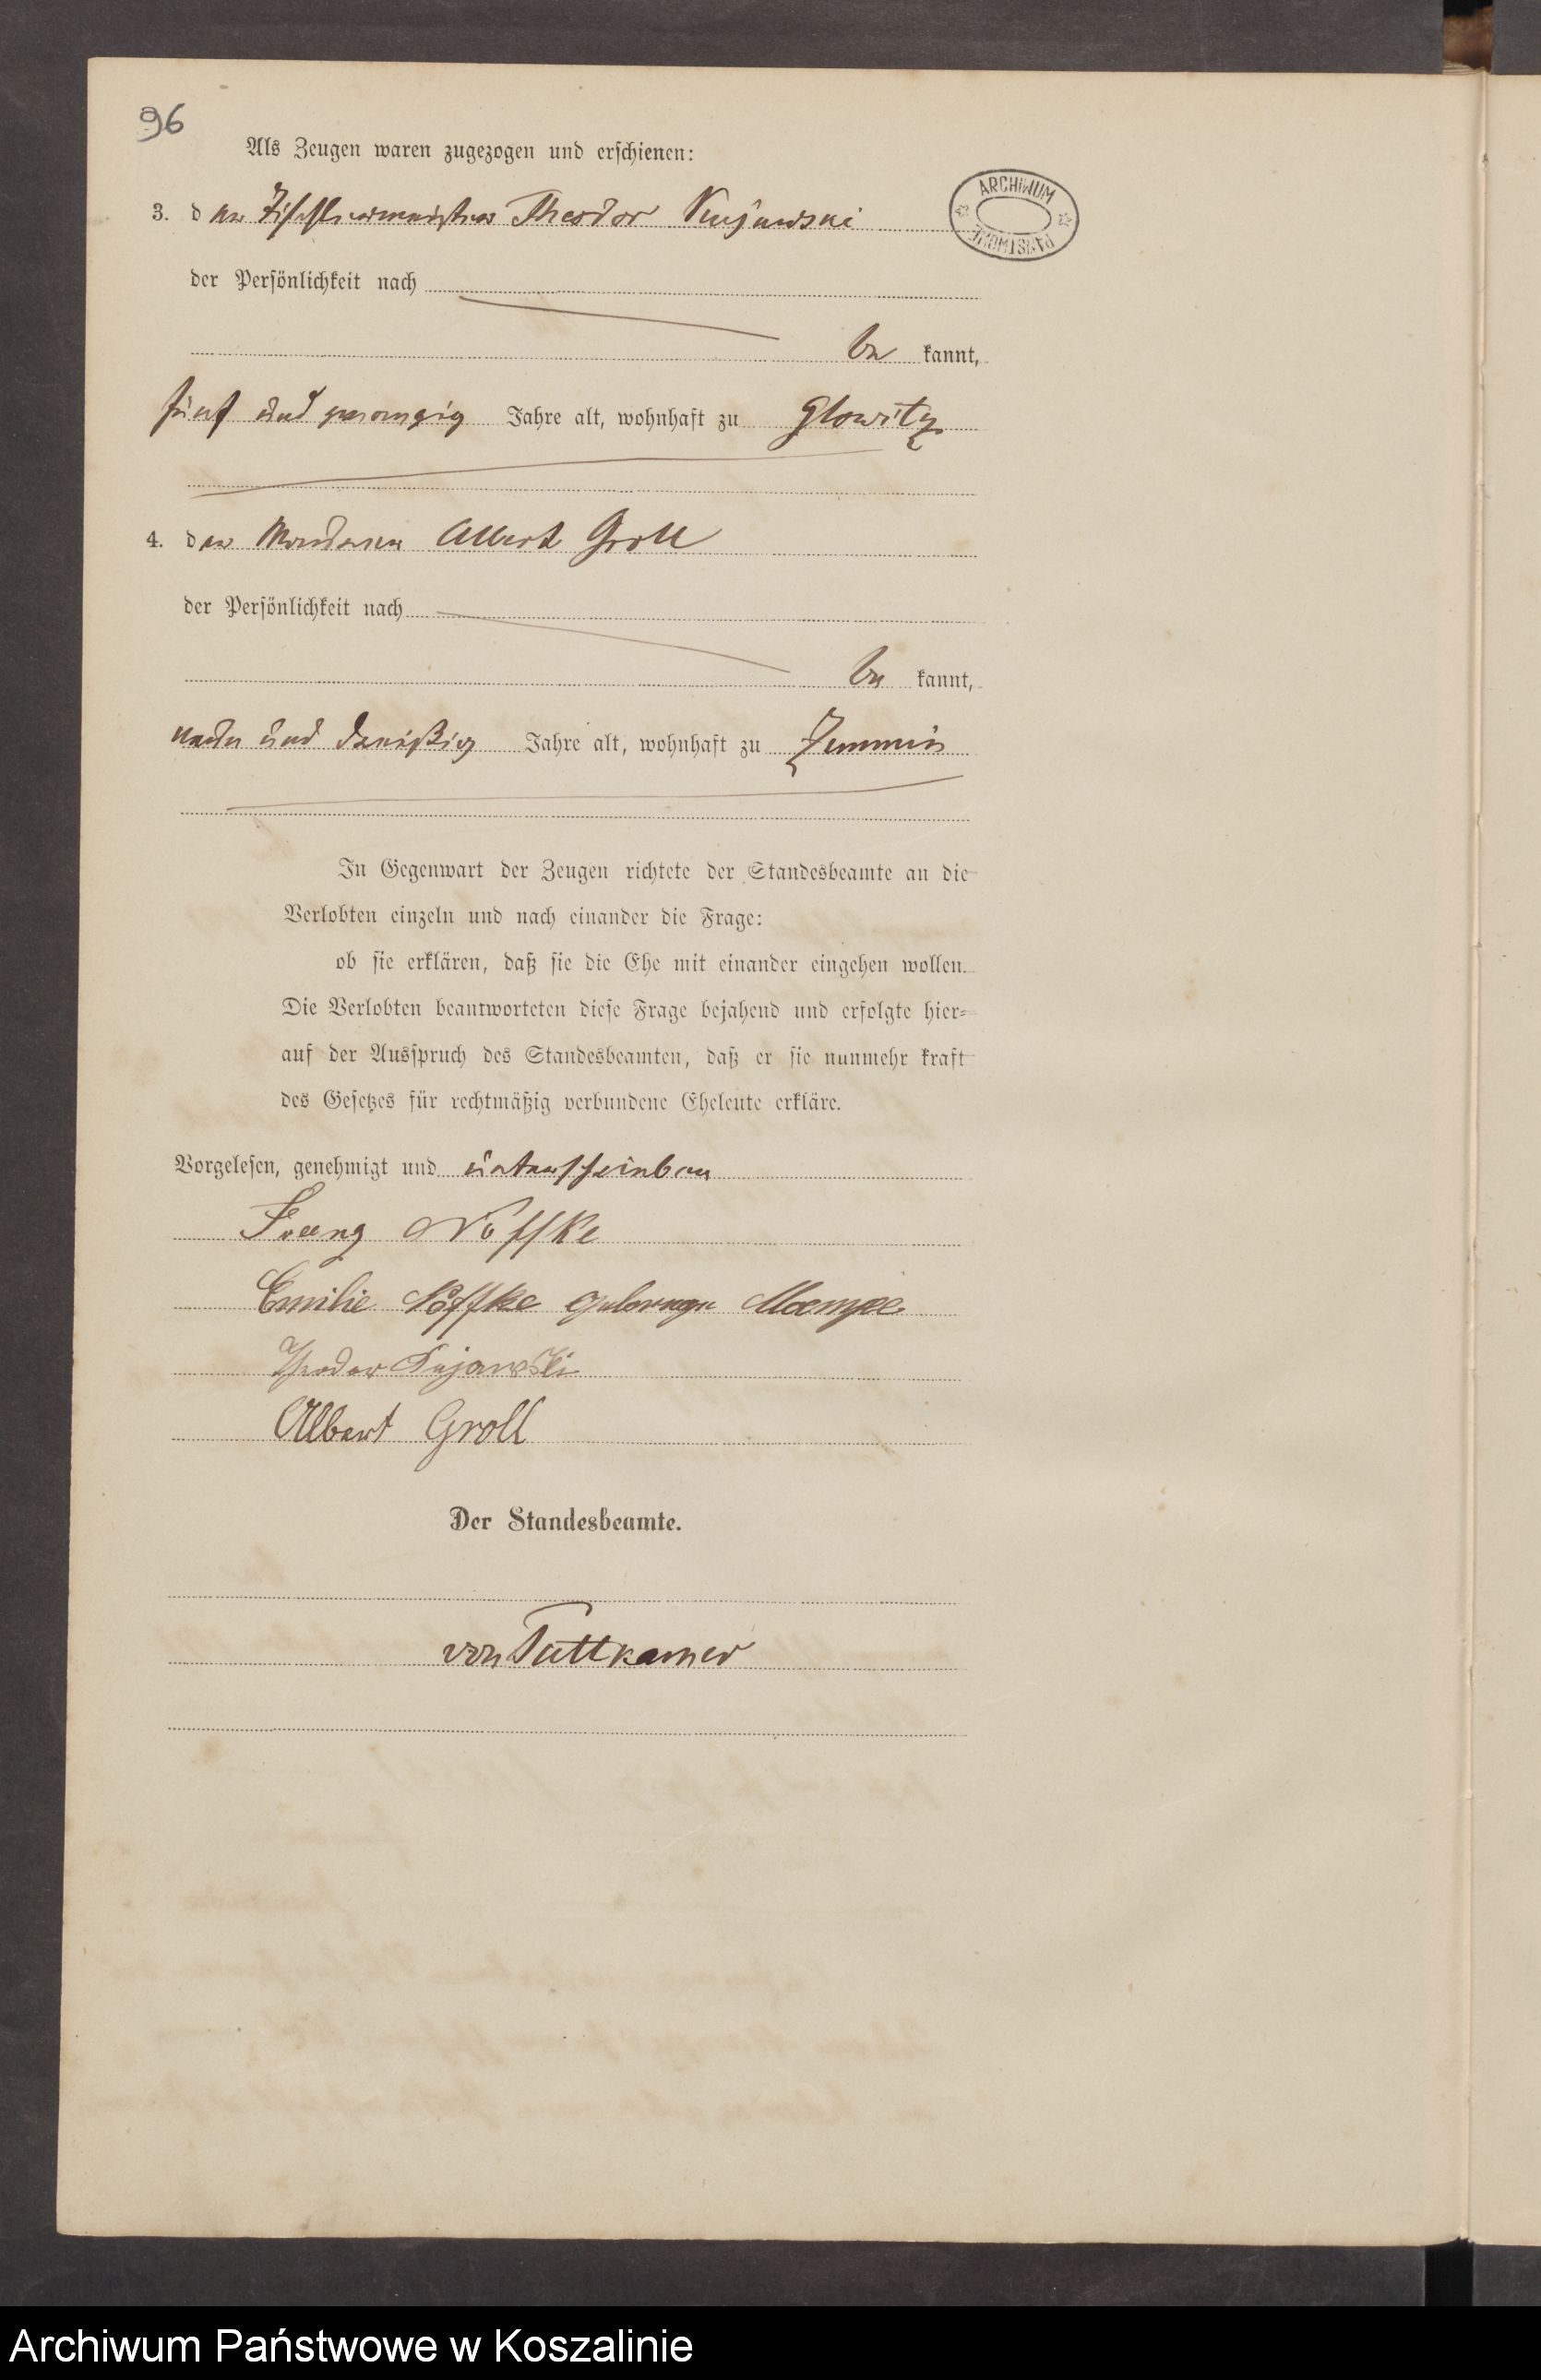 96
Als Zeugen waren zugezogen und erschienen:
3. der Tischlermeister Theodor Kujawski
der Persönlichkeit nach
be kannt,
fünf und zwanzig Jahre alt, wohnhaft zu Glowitz
4. der Albert Groll
der Persönlichkeit nach
be kannt,
und dreißig Jahre alt, wohnhaft zu Zemmin
In Gegenwart der Zeugen richtete der Standesbeamte an die
Verlobten einzeln und nach einander die Frage:
ob sie erklären, daß sie die Ehe mit einander eingehen wollen.
Die Verlobten beantworteten diese Frage bejahend und erfolgte hier-
auf der Ausspruch des Standesbeamten, daß er sie nunmehr kraft
des Gesetzes für rechtmäßig verbundene Eheleute erkläre.
Vorgelesen, genehmigt und unterschrieben
Franz Noffke
Emilie Noffke geborene
Theodor Kujawski
Albert Groll
Der Standesbeamte.
von Puttkamer
ARCHIWUM
PAŃSTWOWE
Archiwum Państwowe w Koszalinie